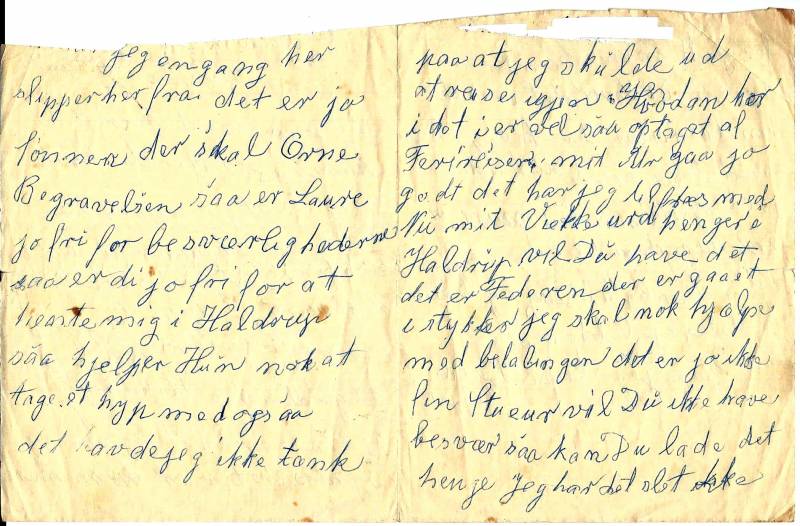 jeg engang her
slipper herfra det er jo
sønnen der skal Orne
Begravelsen saa er Laure
jo fri for besværlighederne
saa er di jo fri for at
hente mig i Haldrup
saa hjelper Hun nok at
et hyp med ogsaa
det havde jeg ikke tænk
paa at jeg skulde ud
at reise igjen Hvodan har
i dot i er vel saa optaget al
Ferireisen mit Ur gaa jo
godt det har jeg tilfræs med
Nu mit Vække urd henger i
Haldrup vil Du have det
det er Federen der er gaaet
i stykker jeg skal nok hjælpe
med belalingen det er jo ikke
en Stueur vil Du ikke have
besvær saa kan Du lade det
henge Jeg har det slet ikke